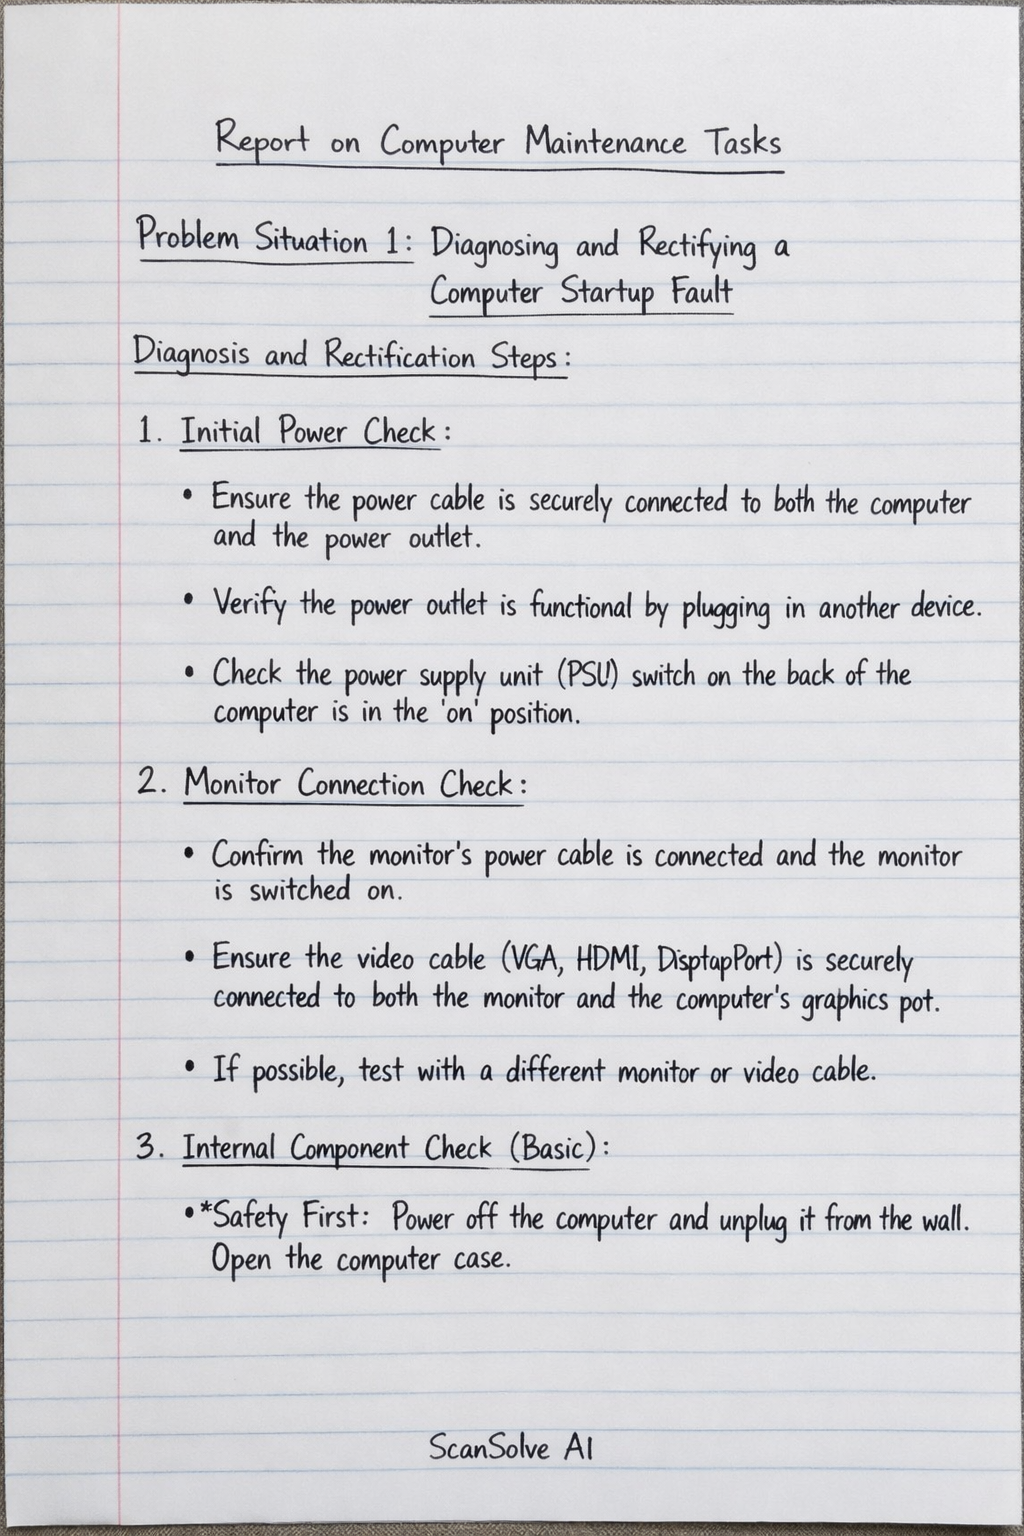 Report on Computer Maintenance Tasks
Problem Situation 1: Diagnosing and Rectifying a
Computer Startup Fault
Diagnosis and Rectification Steps:
1. Initial Power Check:
• Ensure the power cable is securely connected to both the computer
and the power outlet.
• Verify the power outlet is functional by plugging in another device.
• Check the power supply unit (PSU) switch on the back of the
computer is in the 'on' position.
2. Monitor Connection Check:
• Confirm the monitor's power cable is connected and the monitor
is switched on.
• Ensure the video cable (VGA, HDMI, DisptapPort) is securely
connected to both the monitor and the computer's graphics pot.
• If possible, test with a different monitor or video cable.
3. Internal Component Check (Basic):
• *Safety First: Power off the computer and unplug it from the wall.
Open the computer case.
ScanSolve AI